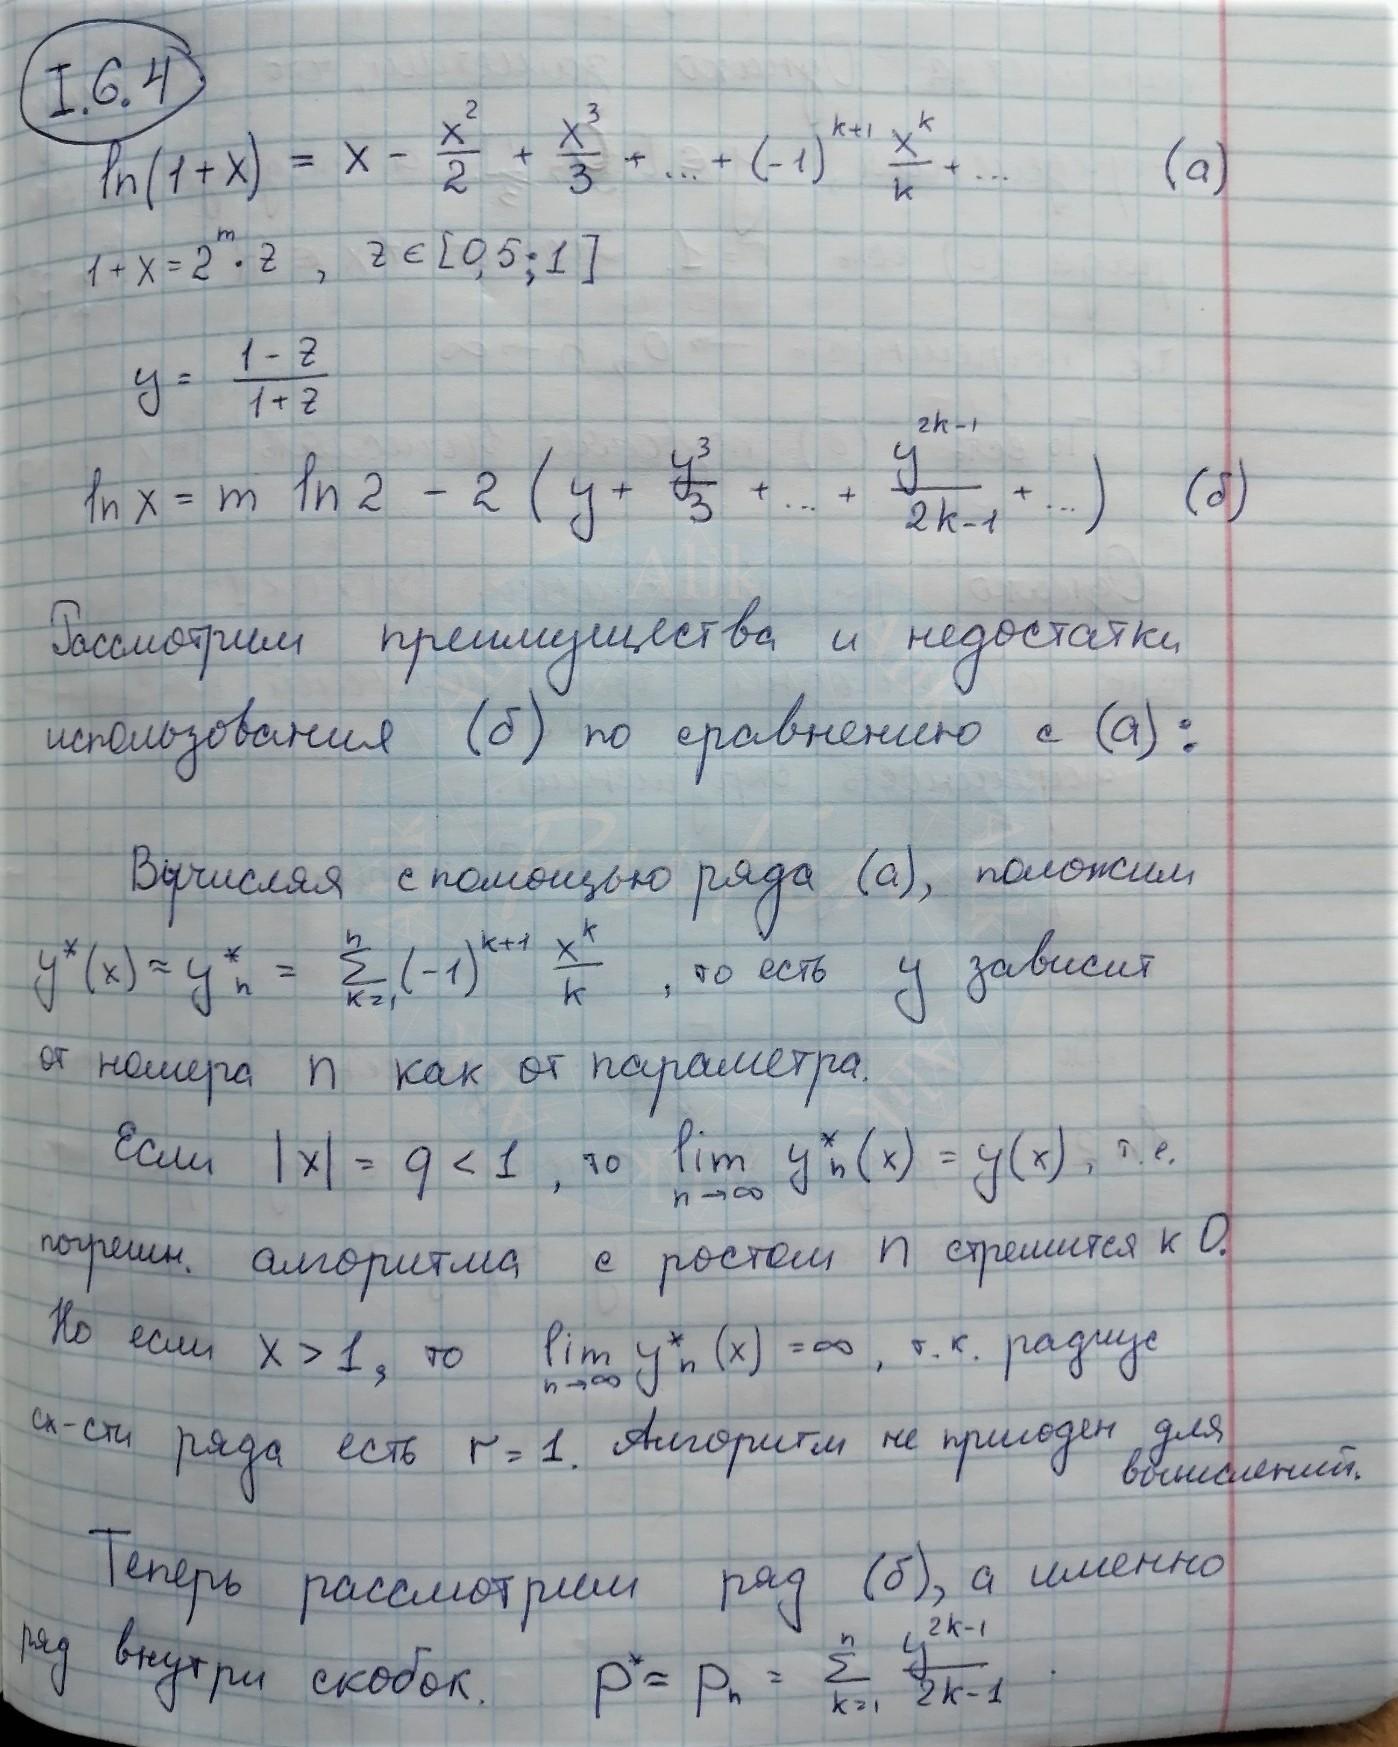 I.6.4
ln(1+x) = x - x²/2 + x³/3 + ... + (-1)^(k+1) x^k/k + ... (а)
1+x = 2^m · z , z ∈ [0,5; 1]
y = (1-z)/(1+z)
ln x = m ln 2 - 2 ( y + y³/3 + ... + y^(2k-1)/(2k-1) + ... ) (б)
Рассмотрим преимущества и недостатки
использования (б) по сравнению с (а):
Вычисляя с помощью ряда (а), положим
y*(x) ≈ y*_n = Σ_(k=1)^n (-1)^(k+1) x^k/k , то есть y зависит
от номера n как от параметра.
Если |x| = q < 1 , то lim_(n→∞) y*_n(x) = y(x), т.е.
погрешн. алгоритма с ростом n стремится к 0.
Но если x > 1, то lim_(n→∞) y*_n(x) = ∞ , т.к. радиус
сх-сти ряда есть r = 1. Алгоритм не пригоден для
вычислений.
Теперь рассмотрим ряд (б), а именно
ряд внутри скобок. p* ≈ p_n = Σ_(k=1)^n y^(2k-1)/(2k-1) .
Alik